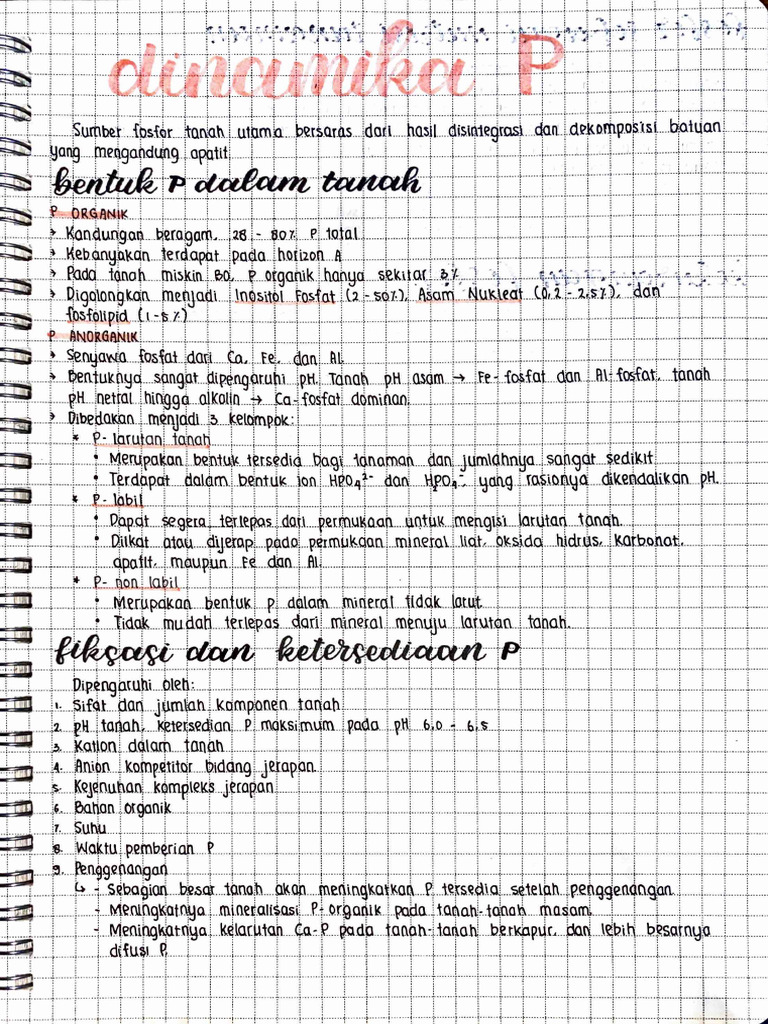 dinamika P
Sumber fosfor tanah utama bersaras dari hasil disintegrasi dan dekomposisi batuan
yang mengandung apatit
bentuk P dalam tanah
P ORGANIK
> Kandungan beragam, 28 - 80% P total
> Kebanyakan terdapat pada horizon A
> Pada tanah miskin BO, P organik hanya sekitar 3%
> Digolongkan menjadi Inositol Fosfat (2 - 50%), Asam Nukleat (0,2 - 2,5%), dan
fosfolipid (1-5%)
P ANORGANIK
> Senyawa fosfat dari Ca, Fe, dan Al.
> Bentuknya sangat dipengaruhi pH. Tanah pH asam → Fe-fosfat dan Al-fosfat, tanah
pH netral hingga alkalin → Ca-fosfat dominan.
> Dibedakan menjadi 3 kelompok:
* P- larutan tanah
• Merupakan bentuk tersedia bagi tanaman dan jumlahnya sangat sedikit
• Terdapat dalam bentuk ion HPO₄²⁻ dan H₂PO₄⁻ yang rasionya dikendalikan pH.
* P- labil
• Dapat segera terlepas dari permukaan untuk mengisi larutan tanah.
• Diikat atau dijerap pada permukaan mineral liat, oksida hidrus, karbonat,
apatit, maupun Fe dan Al.
* P- non labil
• Merupakan bentuk P dalam mineral tidak larut
• Tidak mudah terlepas dari mineral menuju larutan tanah.
fiksasi dan ketersediaan P
Dipengaruhi oleh:
1. Sifat dan jumlah komponen tanah
2. pH tanah, ketersedian P maksimum pada pH 6,0 - 6,5
3. Kation dalam tanah
4. Anion kompetitor bidang jerapan
5. Kejenuhan kompleks jerapan
6. Bahan organik
7. Suhu
8. Waktu pemberian P
9. Penggenangan
↳ - Sebagian besar tanah akan meningkatkan P tersedia setelah penggenangan
- Meningkatnya mineralisasi P-organik pada tanah-tanah masam.
- Meningkatnya kelarutan Ca-P pada tanah-tanah berkapur, dan lebih besarnya
difusi P.